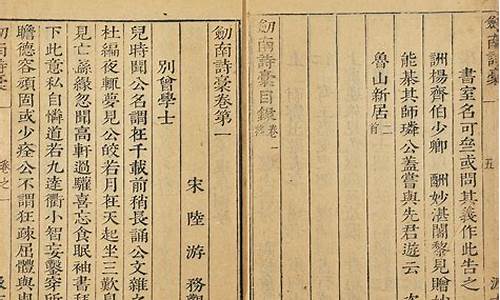 劒南詩稾 五
書室名可㕘或問其義作此告之
洲楊齊伯少卿 酬妙湛闍黎見贈妙
能棊其師璘公蓋嘗與先君遊云 次
魯山新居 二首
劒南詩稾目録 卷一終
劒南詩稾卷第一
宋 陸游 務觀
別曾學士
兒時聞公名謂在千載前稍長誦公文雜之
杜編夜輒夢見公皎若月在天起坐三歎息
見亡繇緣忽聞高軒過驩喜忘食眠袖書拜
下此意私自憐道若九逵衢小智妄鑿穿所
瞻德容頑固或少痊公不謂狂疎屈體與
劒南詩稾 卷之一